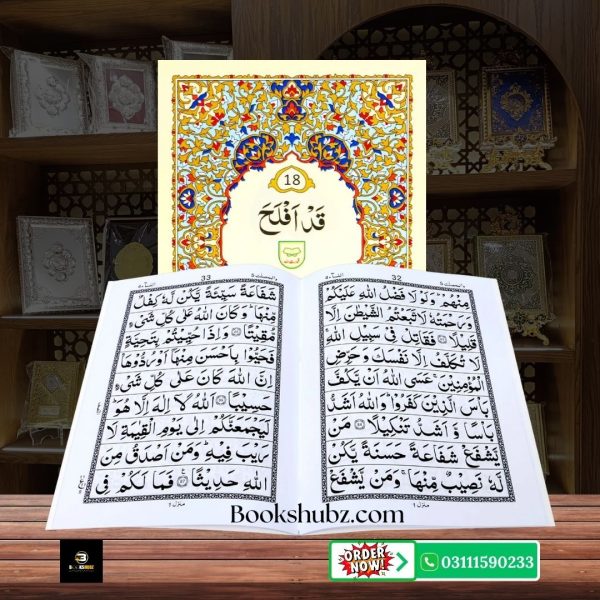 18
قَدْ اَفْلَحَ
32
مِنْهُمْ ؕ وَلَوْلَا فَضْلُ اللّٰهِ عَلَيْكُمْ
وَرَحْمَتُهٗ لَاتَّبَعْتُمُ الشَّيْطٰنَ اِلَّا
قَلِيْلًا فَقَاتِلْ فِيْ سَبِيْلِ اللّٰهِ ۚ
لَا تُكَلَّفُ اِلَّا نَفْسَكَ وَحَرِّضِ
الْمُؤْمِنِيْنَ ۚ عَسَى اللّٰهُ اَنْ يَّكُفَّ
بَاْسَ الَّذِيْنَ كَفَرُوْا ؕ وَاللّٰهُ اَشَدُّ
بَاْسًا وَّاَشَدُّ تَنْكِيْلًا مَنْ
يَّشْفَعْ شَفَاعَةً حَسَنَةً يَّكُنْ
لَّهٗ نَصِيْبٌ مِّنْهَا ۚ وَمَنْ يَّشْفَعْ
منزل ١
33
شَفَاعَةً سَيِّئَةً يَّكُنْ لَّهٗ كِفْلٌ
مِّنْهَا ؕ وَكَانَ اللّٰهُ عَلٰى كُلِّ شَيْءٍ
مُّقِيْتًا وَاِذَا حُيِّيْتُمْ بِتَحِيَّةٍ
فَحَيُّوْا بِاَحْسَنَ مِنْهَاۤ اَوْ رُدُّوْهَا ؕ
اِنَّ اللّٰهَ كَانَ عَلٰى كُلِّ شَيْءٍ
حَسِيْبًا اَللّٰهُ لَاۤ اِلٰهَ اِلَّا هُوَ ؕ
لَيَجْمَعَنَّكُمْ اِلٰى يَوْمِ الْقِيٰمَةِ لَا
رَيْبَ فِيْهِ ؕ وَمَنْ اَصْدَقُ مِنَ
اللّٰهِ حَدِيْثًا فَمَا لَكُمْ فِي
منزل ١
Bookshubz.com
BOOKSHUBZ
ORDER NOW!
03111590233